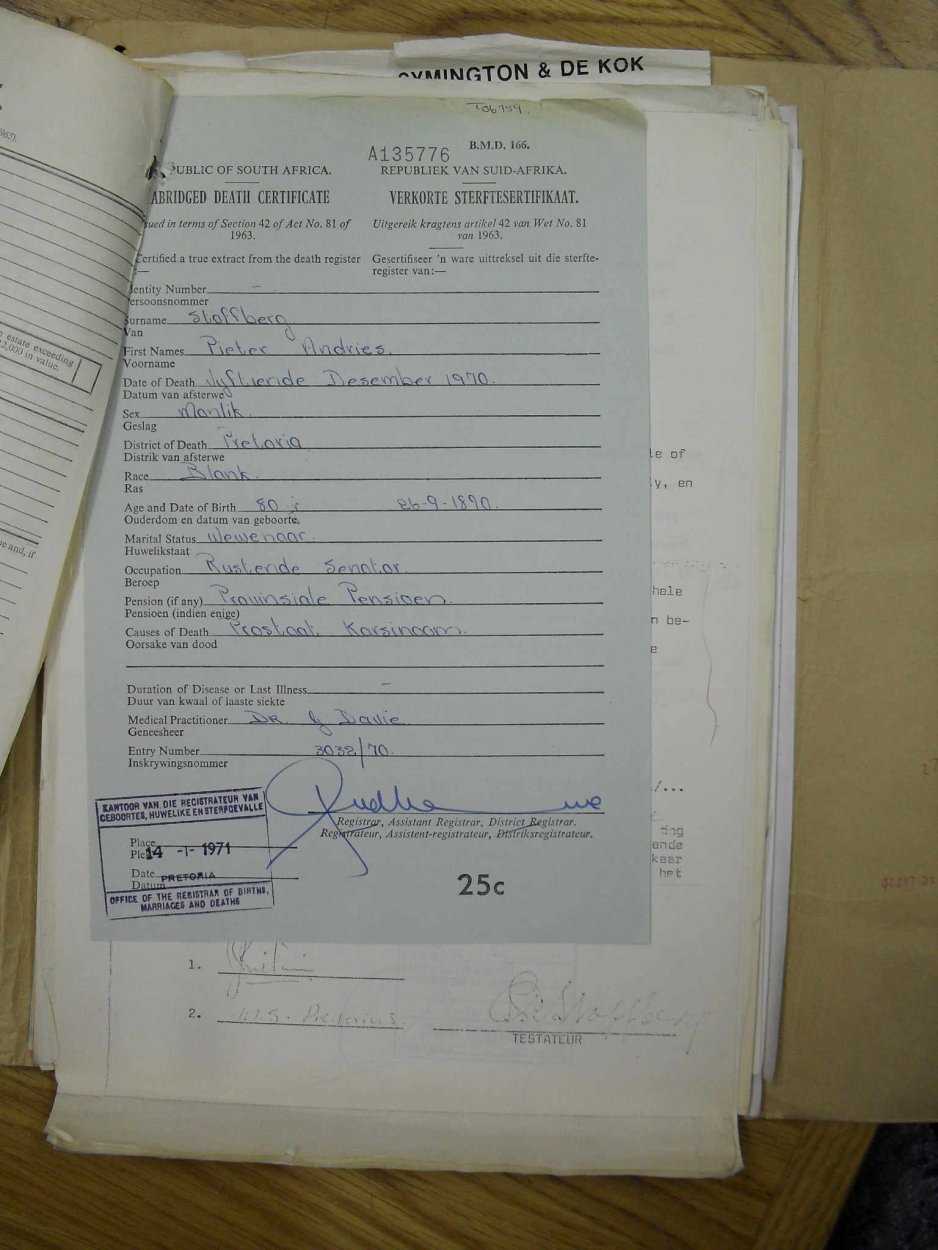 SYMINGTON & DE KOK
706759
965).
B.M.D. 166.
A135776
PUBLIC OF SOUTH AFRICA.
REPUBLIEK VAN SUID-AFRIKA.
ABRIDGED DEATH CERTIFICATE
VERKORTE STERFTESERTIFIKAAT.
sued in terms of Section 42 of Act No. 81 of
1963.
Uitgereik kragtens artikel 42 van Wet No. 81
van 1963.
Certified a true extract from the death register
:—
Gesertifiseer 'n ware uittreksel uit die sterfte-
register van:—
dentity Number –
ersoonsnommer
Surname Stoffberg
Van
First Names Pieter Andries.
Voorname
Date of Death Vyftiende Desember 1970.
Datum van afsterwe
Sex Manlik.
Geslag
District of Death Pretoria
Distrik van afsterwe
Race Blank.
Ras
Age and Date of Birth 80 j 26-9-1890.
Ouderdom en datum van geboorte.
Marital Status Wewenaar.
Huwelikstaat
Occupation Rustende Senator.
Beroep
Pension (if any) Provinsiale Pensioen.
Pensioen (indien enige)
Causes of Death Prostaat Karsinoom.
Oorsake van dood
Duration of Disease or Last Illness –
Duur van kwaal of laaste siekte
Medical Practitioner DR. G Davie.
Geneesheer
Entry Number 3032/70.
Inskrywingsnommer
Registrar, Assistant Registrar, District Registrar.
Registrateur, Assistent-registrateur, Distriksregistrateur.
KANTOOR VAN DIE REGISTRATEUR VAN
GEBOORTES, HUWELIKE EN STERFGEVALLE
Place
Plek
14 -1- 1971
Date
Datum
PRETORIA
OFFICE OF THE REGISTRAR OF BIRTHS,
MARRIAGES AND DEATHS
25c
estate exceeding
2,000 in value.
e and, if
le of
y, en
hele
n be-
e
/...
ding
ende
kaar
het
1.
2. M.S. Pretorius
TESTATEUR